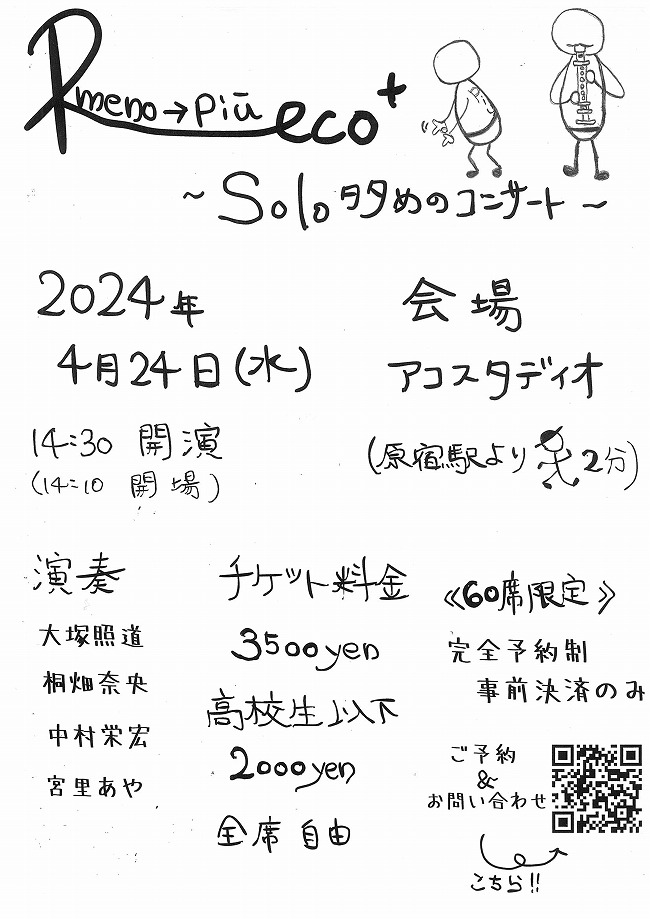 R meno→più eco+
~Solo多めのコンサート~
2024年
4月24日(水)
14:30 開演
(14:10 開場)
会場
アコスタディオ
(原宿駅より 2分)
演奏
大塚照道
桐畑奈央
中村栄宏
宮里あや
チケット料金
3500yen
高校生以下
2000yen
全席自由
《60席限定》
完全予約制
事前決済のみ
ご予約
&
お問い合わせ
こちら!!